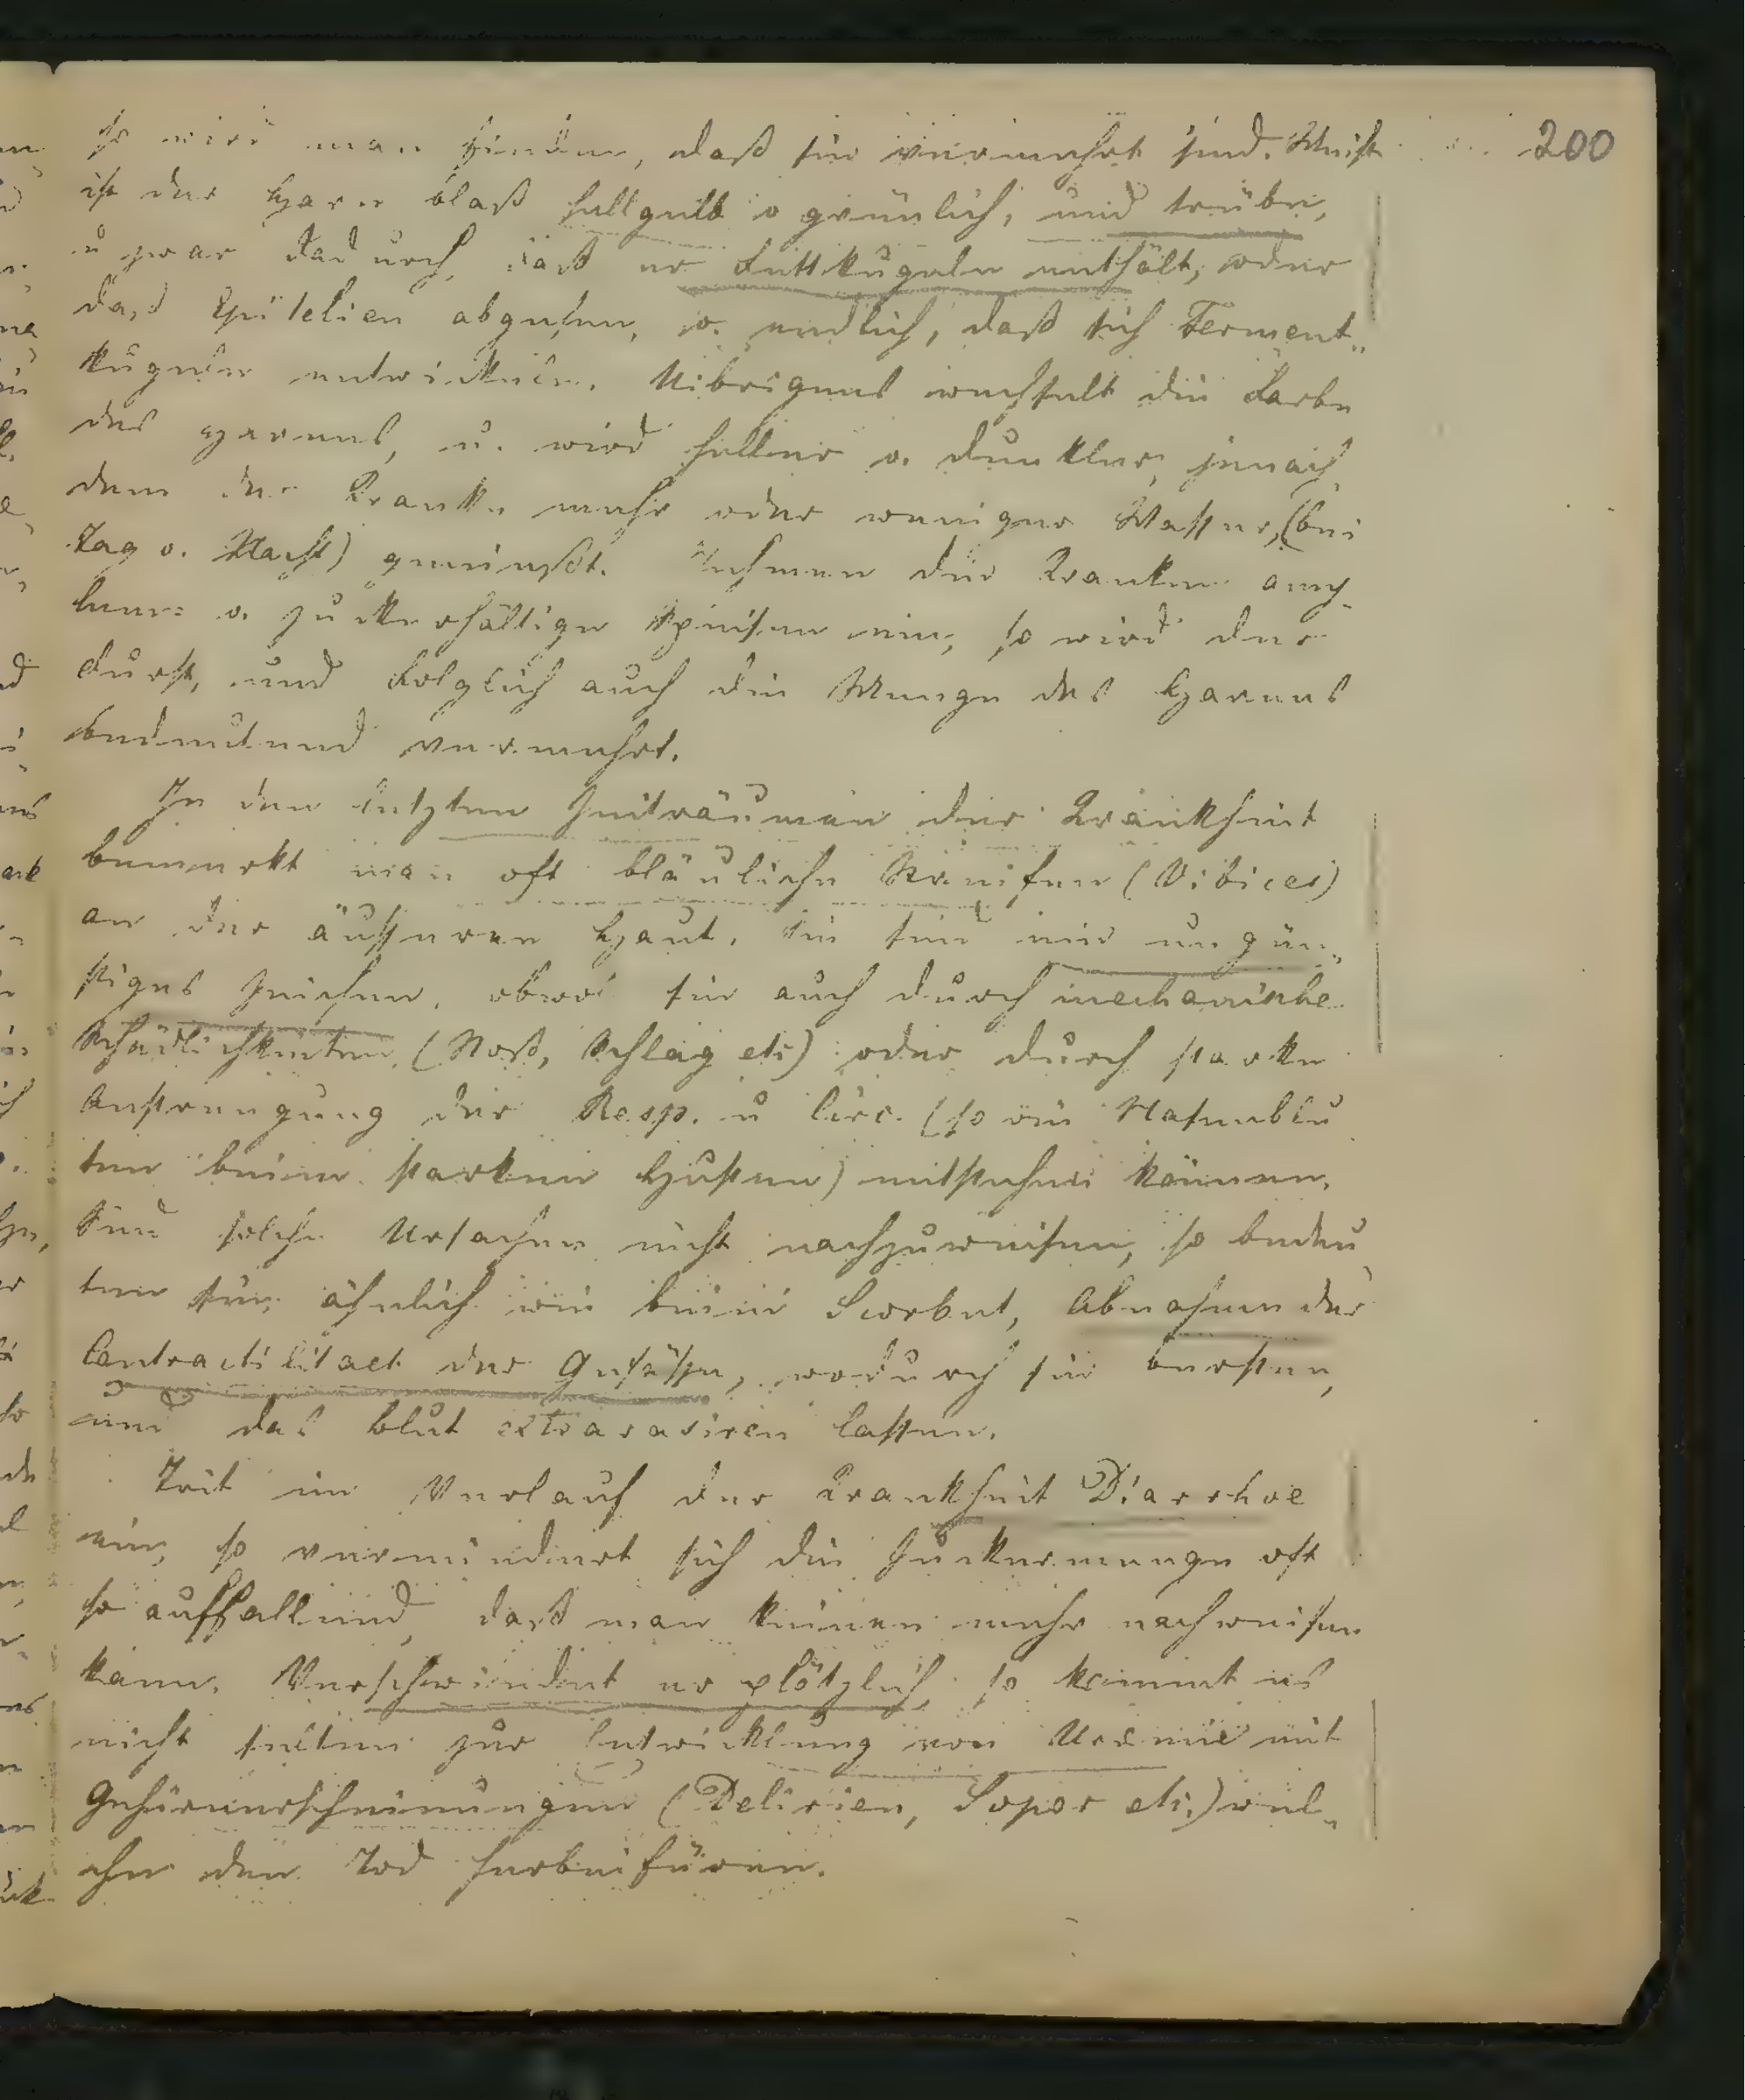 200
so wird man finden, daß sie vermehrt sind. Meist
ist der Harn blaß hellgelb o grünlich, und trübe,
u zwar dadurch, daß er Fettkugeln enthält, oder
daß Epitelien abgehen, o. endlich, daß sich Ferment„
kugeln entwickeln. Uibrigens wechselt die Farbe
des Harnes, u. wird heller o. dunkler, jenach
dem der Kranke mehr oder weniger Wasser, (bei
Tag o. Nacht) genießt. Nehmen die Kranken amy-
lum= o. zuckerhältige Speisen ein, so wird der
Durst, und folglich auch die Menge des Harnes
bedeutend vermehrt.
In den letzten Zeiträumen der Krankheit
bemerkt man oft bläuliche Streifen (Vibices)
an der äußeren Haut. Sie sind ein ungün„
stiges Zeichen, obwol sie auch durch mechanische
Schädlichkeiten (Stoß, Schlag etc) oder durch starke
Anstrengung der Resp. u Circ. (so wie Nasenblu
ten beim starken Husten) entstehen können.
Sind solche Ursachen nicht nachzuweisen, so bedeu
ten sie, ähnlich wie beim Scorbut, Abnahme der
Contractilitaet der Gefäße, wodurch sie bersten,
und das Blut extravasiren lassen.
Trit im Verlauf der Krankheit Diarrhoe
ein, so vermindert sich die Zuckermenge oft
so auffallend, daß man keinen mehr nachweisen
kann. Verschwindet er plötzlich, so kommt es
nicht selten zur Entwicklung von Uremie mit
Gehirnerscheinungen (Delirien, Sopor etc.) wel„
che den Tod herbeifüren.